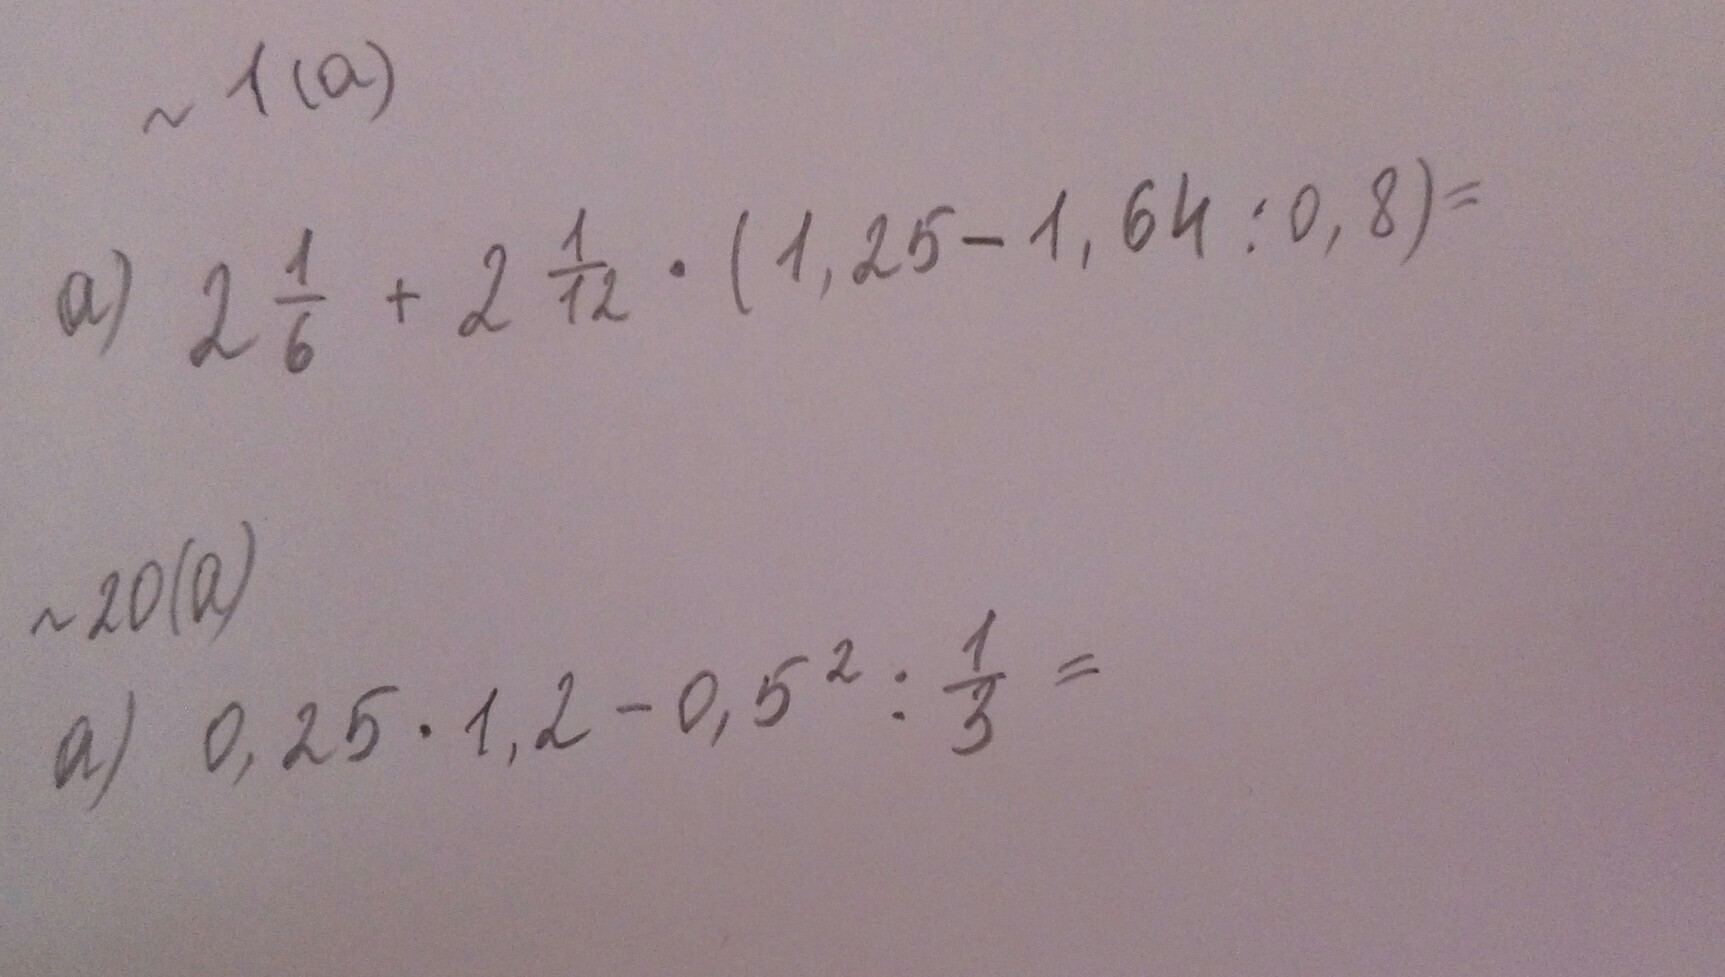 ~ 1(а)
а) 2 1/6 + 2 1/12 · (1,25 - 1,64 : 0,8) =
~ 20(а)
а) 0,25 · 1,2 - 0,5² : 1/3 =